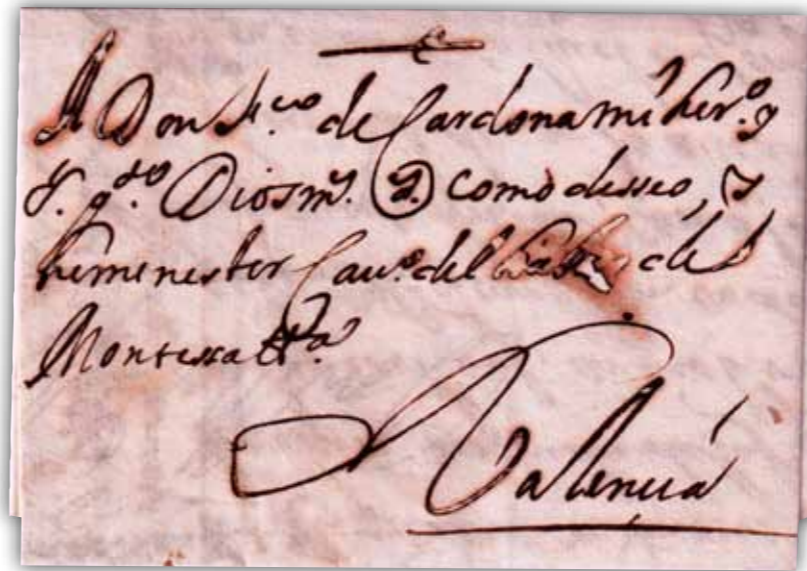 A Don Fr.co de Cardona mi her.o y
S. g.de Dios m.s a.s como desseo, y
he menester Cav.o del de
Montessa &.a
Valencia